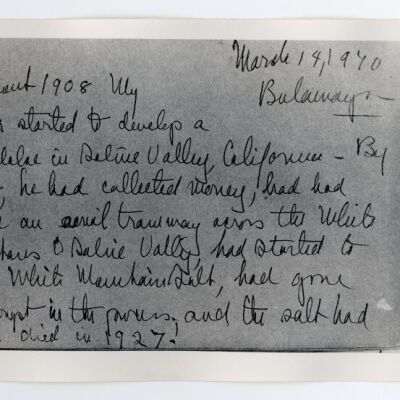 March 14, 1970
out 1908 My
Bulawayo
started to develop a
in Saline Valley, California - By
, he had collected money, had had
an aerial tramway across the White
to Saline Valley, had started to
White Mountain Salt, had gone
in the process, and the salt had
died in 1927!